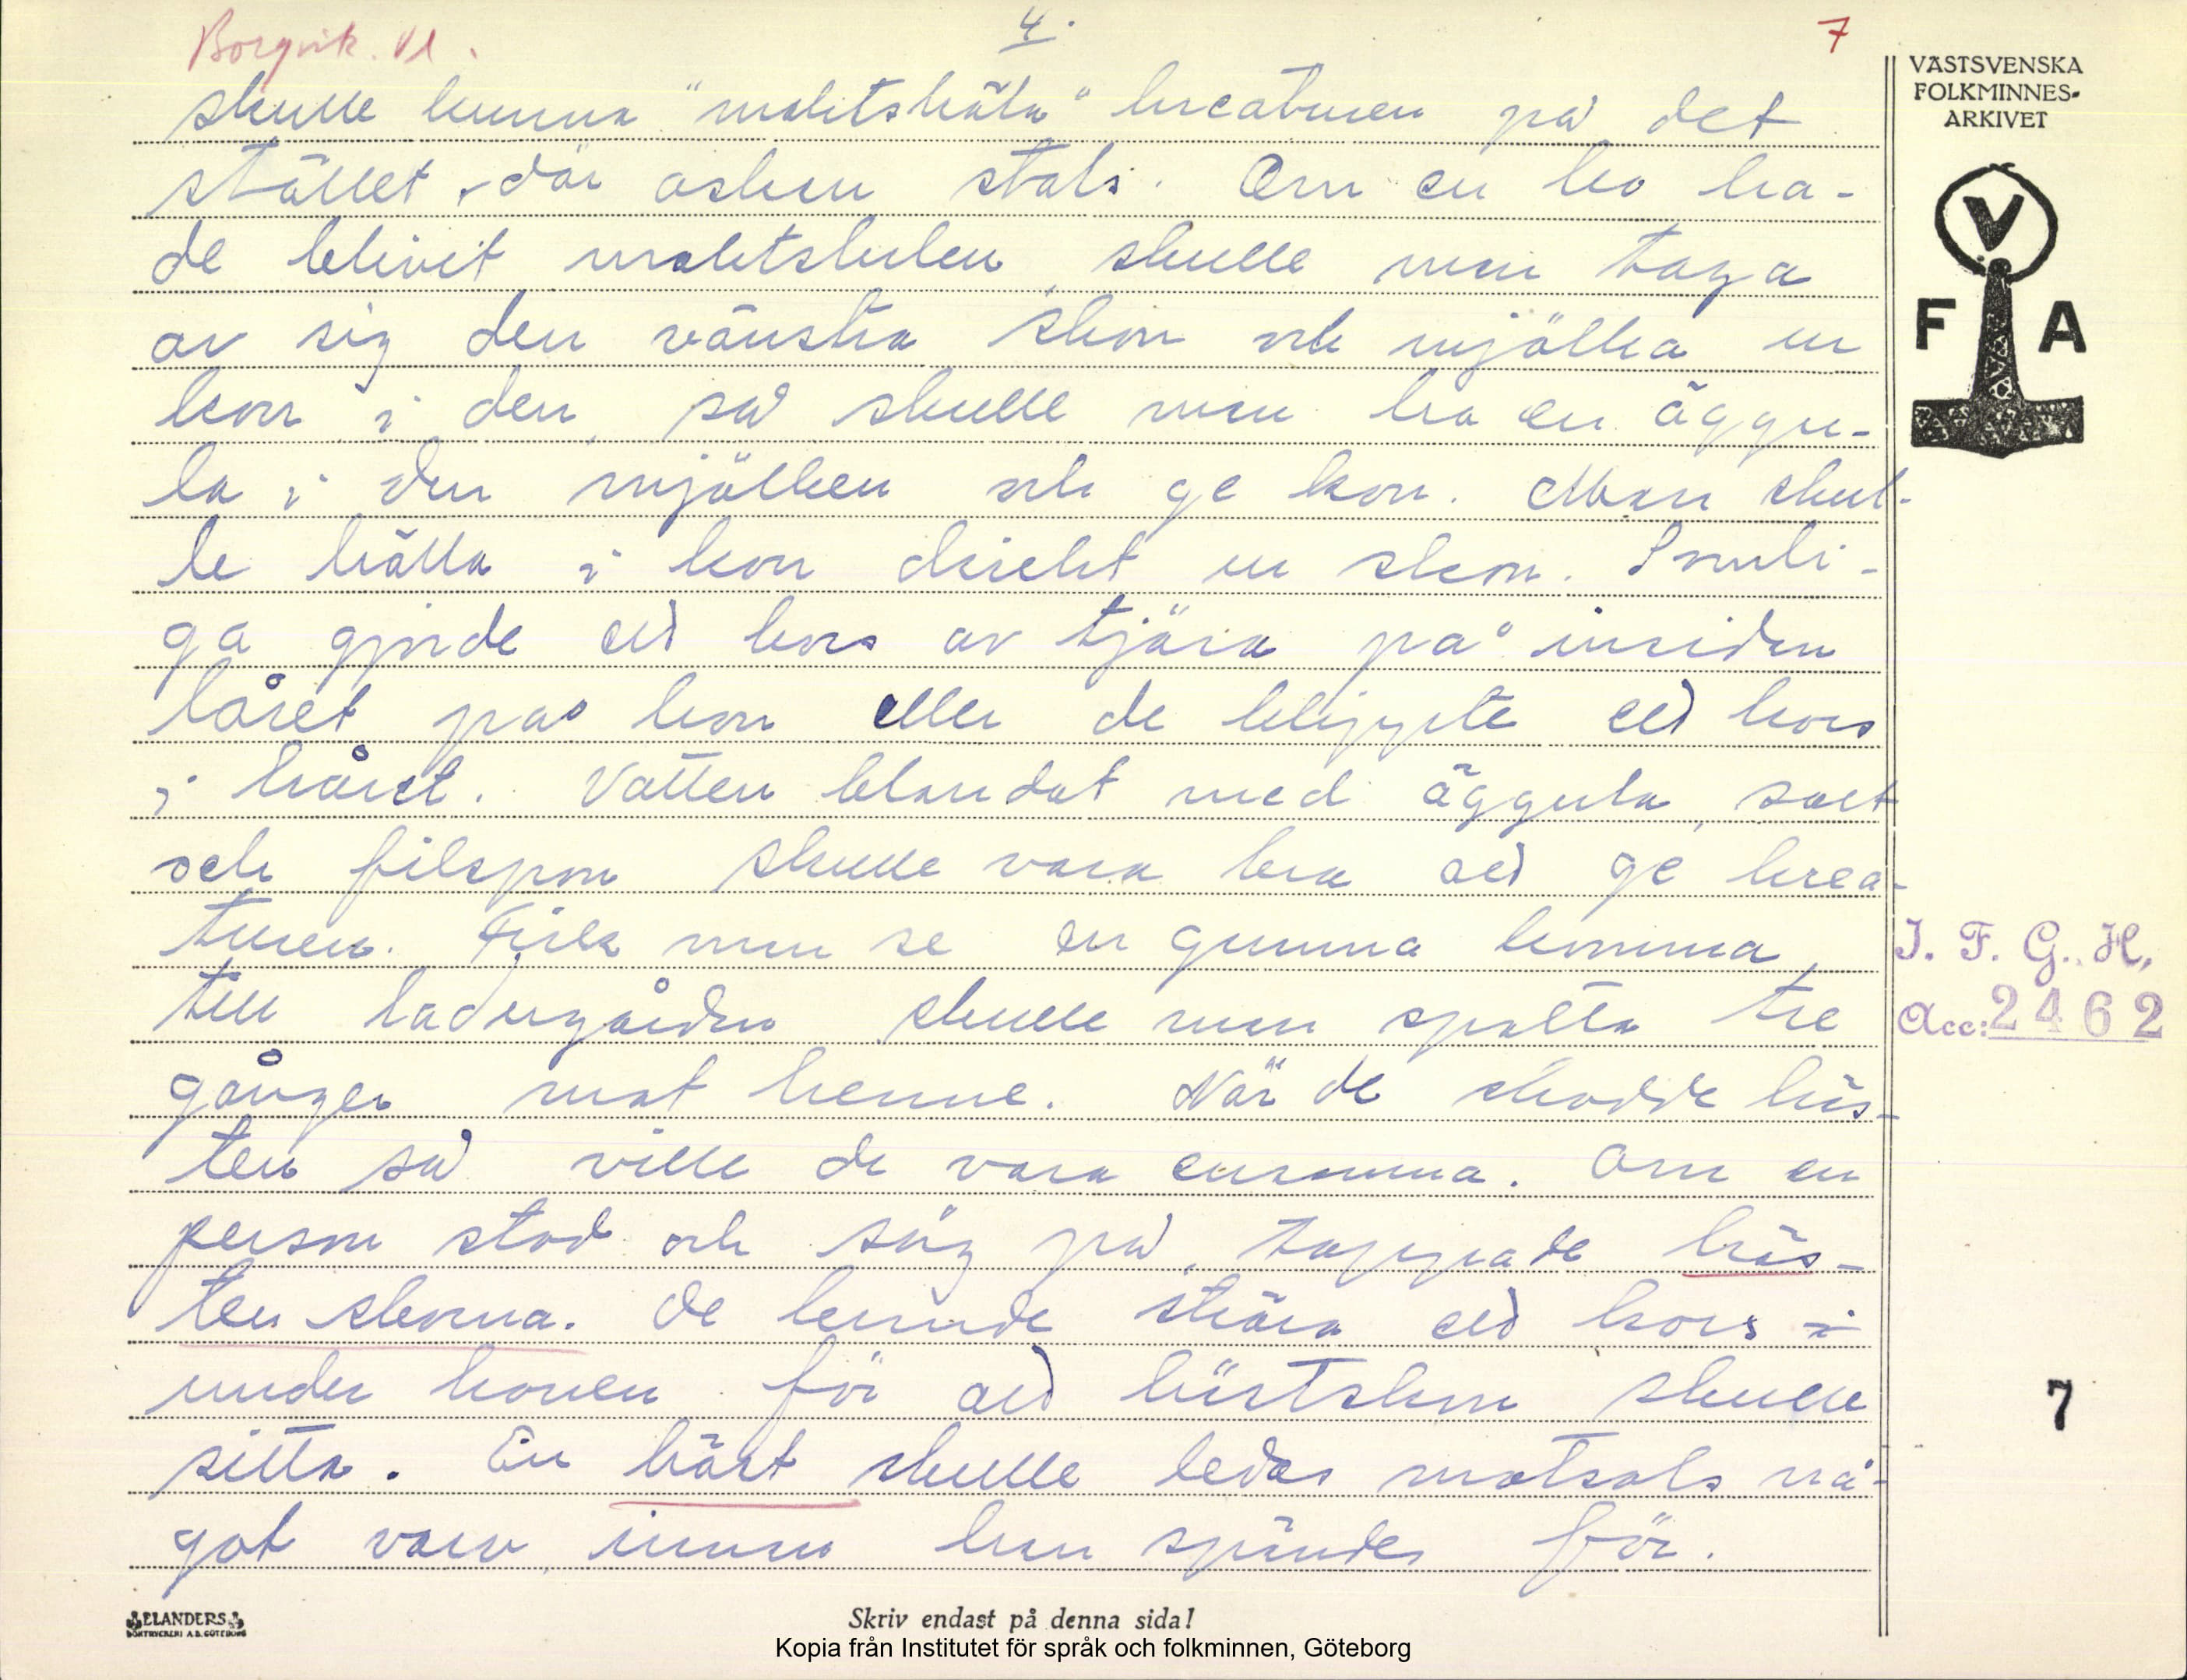 Borgvik. Vl.
4.
7
VÄSTSVENSKA
FOLKMINNES-
ARKIVET
V
F A
skulle kunna "maktstjäla" kreaturen på det
stället, där asken stals. Om en ko ha-
de blivit maktstulen, skulle man taga
av sig den vänstra skon och mjölka ur
kon i den, så skulle man ha en äggu-
la i den mjölken och ge kon. Man skul-
le hälla i kon direkt ur skon. Somli-
ga gjorde ett kors av tjära på insidan
låret på kon eller de klippte ett kors
i håret. Vatten blandat med äggula, salt
och filspon skulle vara bra att ge krea-
turen. Fick man se en gumma komma
till ladugården, skulle man spotta tre
gånger mot henne. När de skodde häs-
ten så ville de vara ensamma. Om en
person stod och såg på, tappade häs-
ten skorna. De kunde skära ett kors i
under hoven för att hästskon skulle
sitta. En häst skulle ledas motsols nå-
got varv, innan han spändes för.
I. F. G. H.
Acc: 2462
7
ELANDERS
BOKTRYCKERI A.B. GÖTEBORG
Skriv endast på denna sida!
Kopia från Institutet för språk och folkminnen, Göteborg